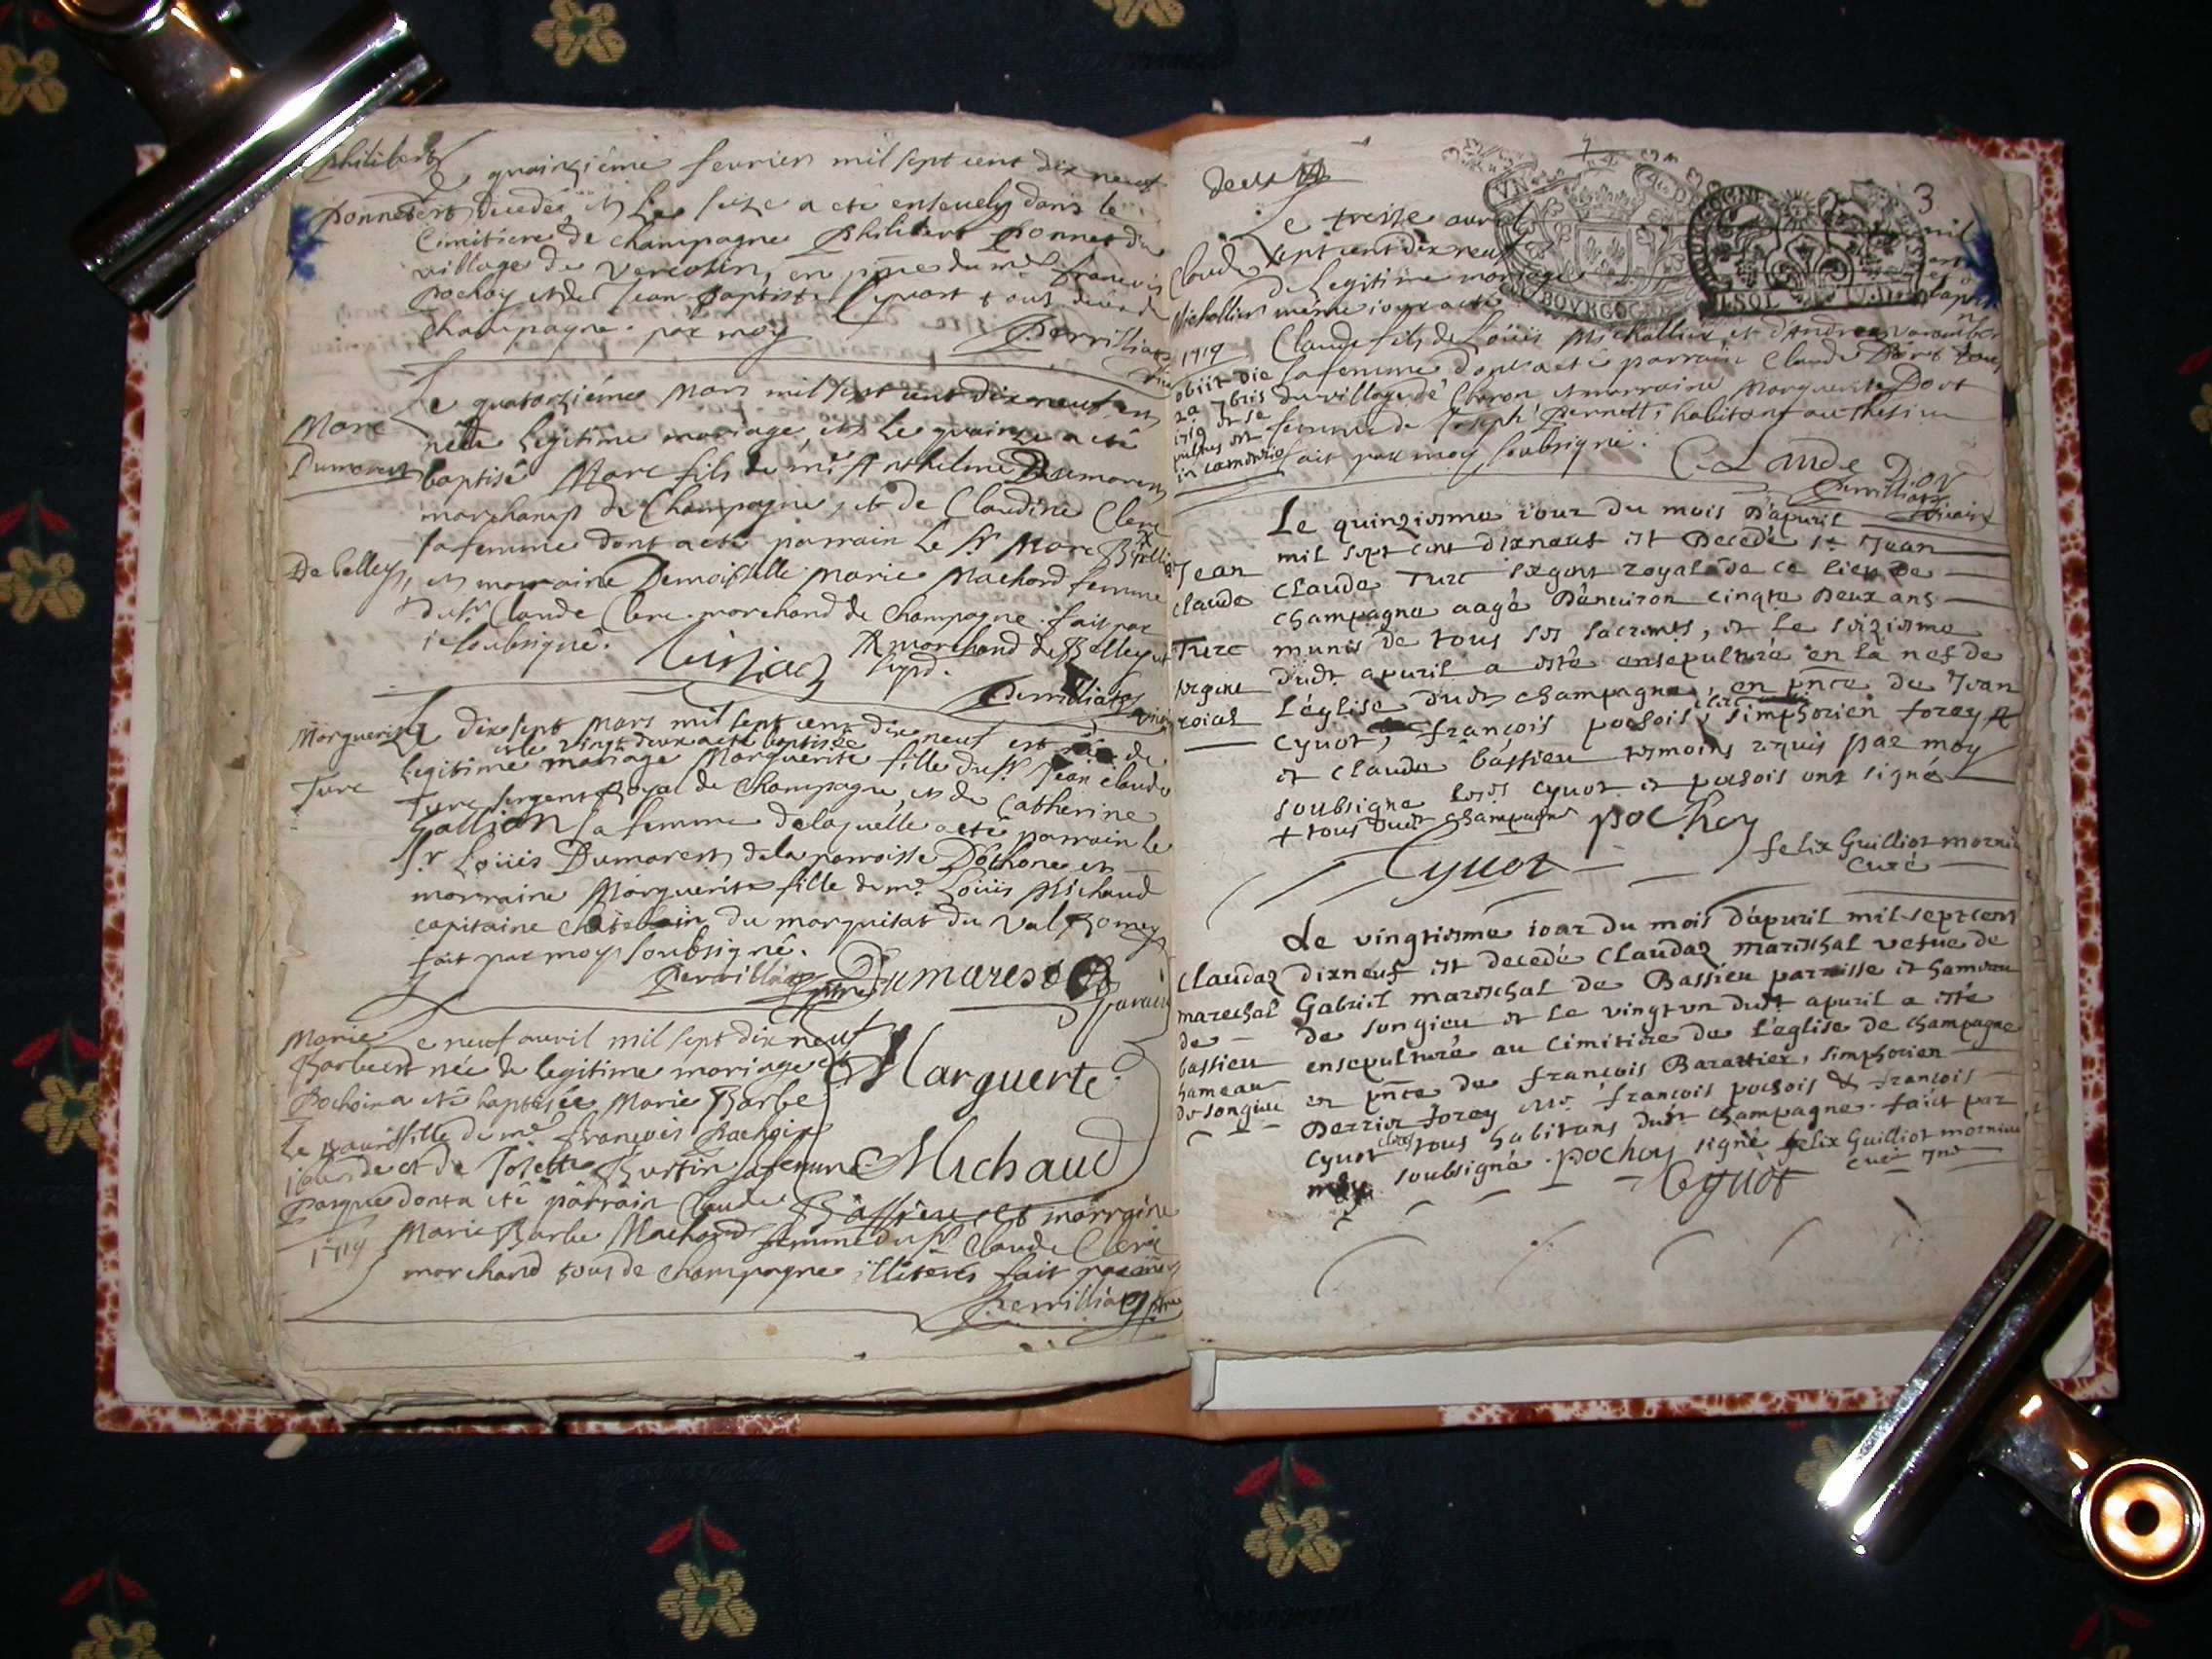 Philibert
quainziéme fevrier mil sept cent dix neuf
Ponnet est decedé et le seize a eté ensevely dans le
Cimitiere de Champagne Philibert Ponnet du
village de Vercosin, en pnce de me francois
Pochoy et de Jean Baptiste Cyvost tous deux de
Champagne. par moy
Perrilliat
Le quatorziéme Mars mil sept cent dix neuf est
Marc
né de legitime mariage, et le quainze a eté
Dumarest
baptisé Marc fils de me Anthelme Dumarest
marchand de Champagne, et de Claudine Clerc
sa femme dont a eté parrain le sr Marc
De belley, et marraine Demoiselle Marie Machard femme
du sr Claude Clerc marchand de Champagne. fait par
ie soubsigné.
marchand de Belley
Perrilliat
Marguerite
Le dix sept mars mil sept cent dix neuf est née de
et le vingt deux a eté baptisée
legitime mariage Marguerite fille du sr Jean Claude
Turc
Turc sergent Royal de Champagne et de Catherine
Gallian sa femme de laquelle a eté parrain le
sr Loüis Dumarest de la parroisse Dothone et
marraine Marguerite fille de me Loüis Michaud
capitaine chatelain du marquisat du Valromey
fait par moy soubsigné.
Perrilliat Dumarest
Parain
Marie
Le neuf avril mil sept dix neuf
Barbe
est née de legitime mariage et
Marguerte
Pochoin
a eté baptisée Marie Barbe
fille de me francois Pochoin
et de Josette Burtin sa femme
Michaud
dont a eté parrain Claude Bassieu et marraine
1719
Marie Barbe Machard femme du sr Claude Clerc
marchand tous de Champagne illiterés fait par moy
Perrilliat
deux
3
VN
DE
BOVRGOGNE
SOL
Le treize avril mil
Claude
sept cent dix neuf
de legitime mariage et
Michallin
méme iour a eté
1719
Claude fils de Loüis Michallin et d'Andrea
obiit die
sa femme dont a eté parrain Claude
2a 7bris
du village de Charon et marraine Marguerite Dort
1719
femme de Joseph Pernett, habitant au
fait par moy soubsigné.
Claude Dior
Perrilliat
vicaire
Le quinziesme iour du mois d'apuril
mil sept cent dixneuf est decedé sr Jean
Jean
Claude Turc sergent royal de ce lieu de
claude
Champagne aagé d'enuiron cinqte deux ans
Turc
munis de tous ses sacremts, et le seiziesme
dudt apuril a esté ensepulturé en la nef de
sergent
l'église dudt champagne, en pnce de Jean
roial
clerc
cyuot, françois pochois, simphorien forey
et claude bassieu tesmoins requis par moy
soubsigne lesds cyuot et pochois ont signé
+ tous dudt champagne
pochoy
Cyuot
felix Guilliot mornieu
Curé
Le vingtiesme iour du mois d'apuril mil sept cent
Claudaz
dixneuf est decedé Claudaz mareschal vefue de
marechal
Gabriel mareschal de Bassieu parroisse et hameau
de
de songieu et le vingt vn dudt apuril a esté
bassieu
ensepulturé au cimitiere de l'eglise de champagne
hameau
en pnce de françois Barattier, simphorien
de songieu
Derrier forey me francois pochois & francois
Cyuot tous habitans dudt champagne. faict par
moy soubsigné. pochoy signé felix Guilliot mornieu
curé
Cyuot